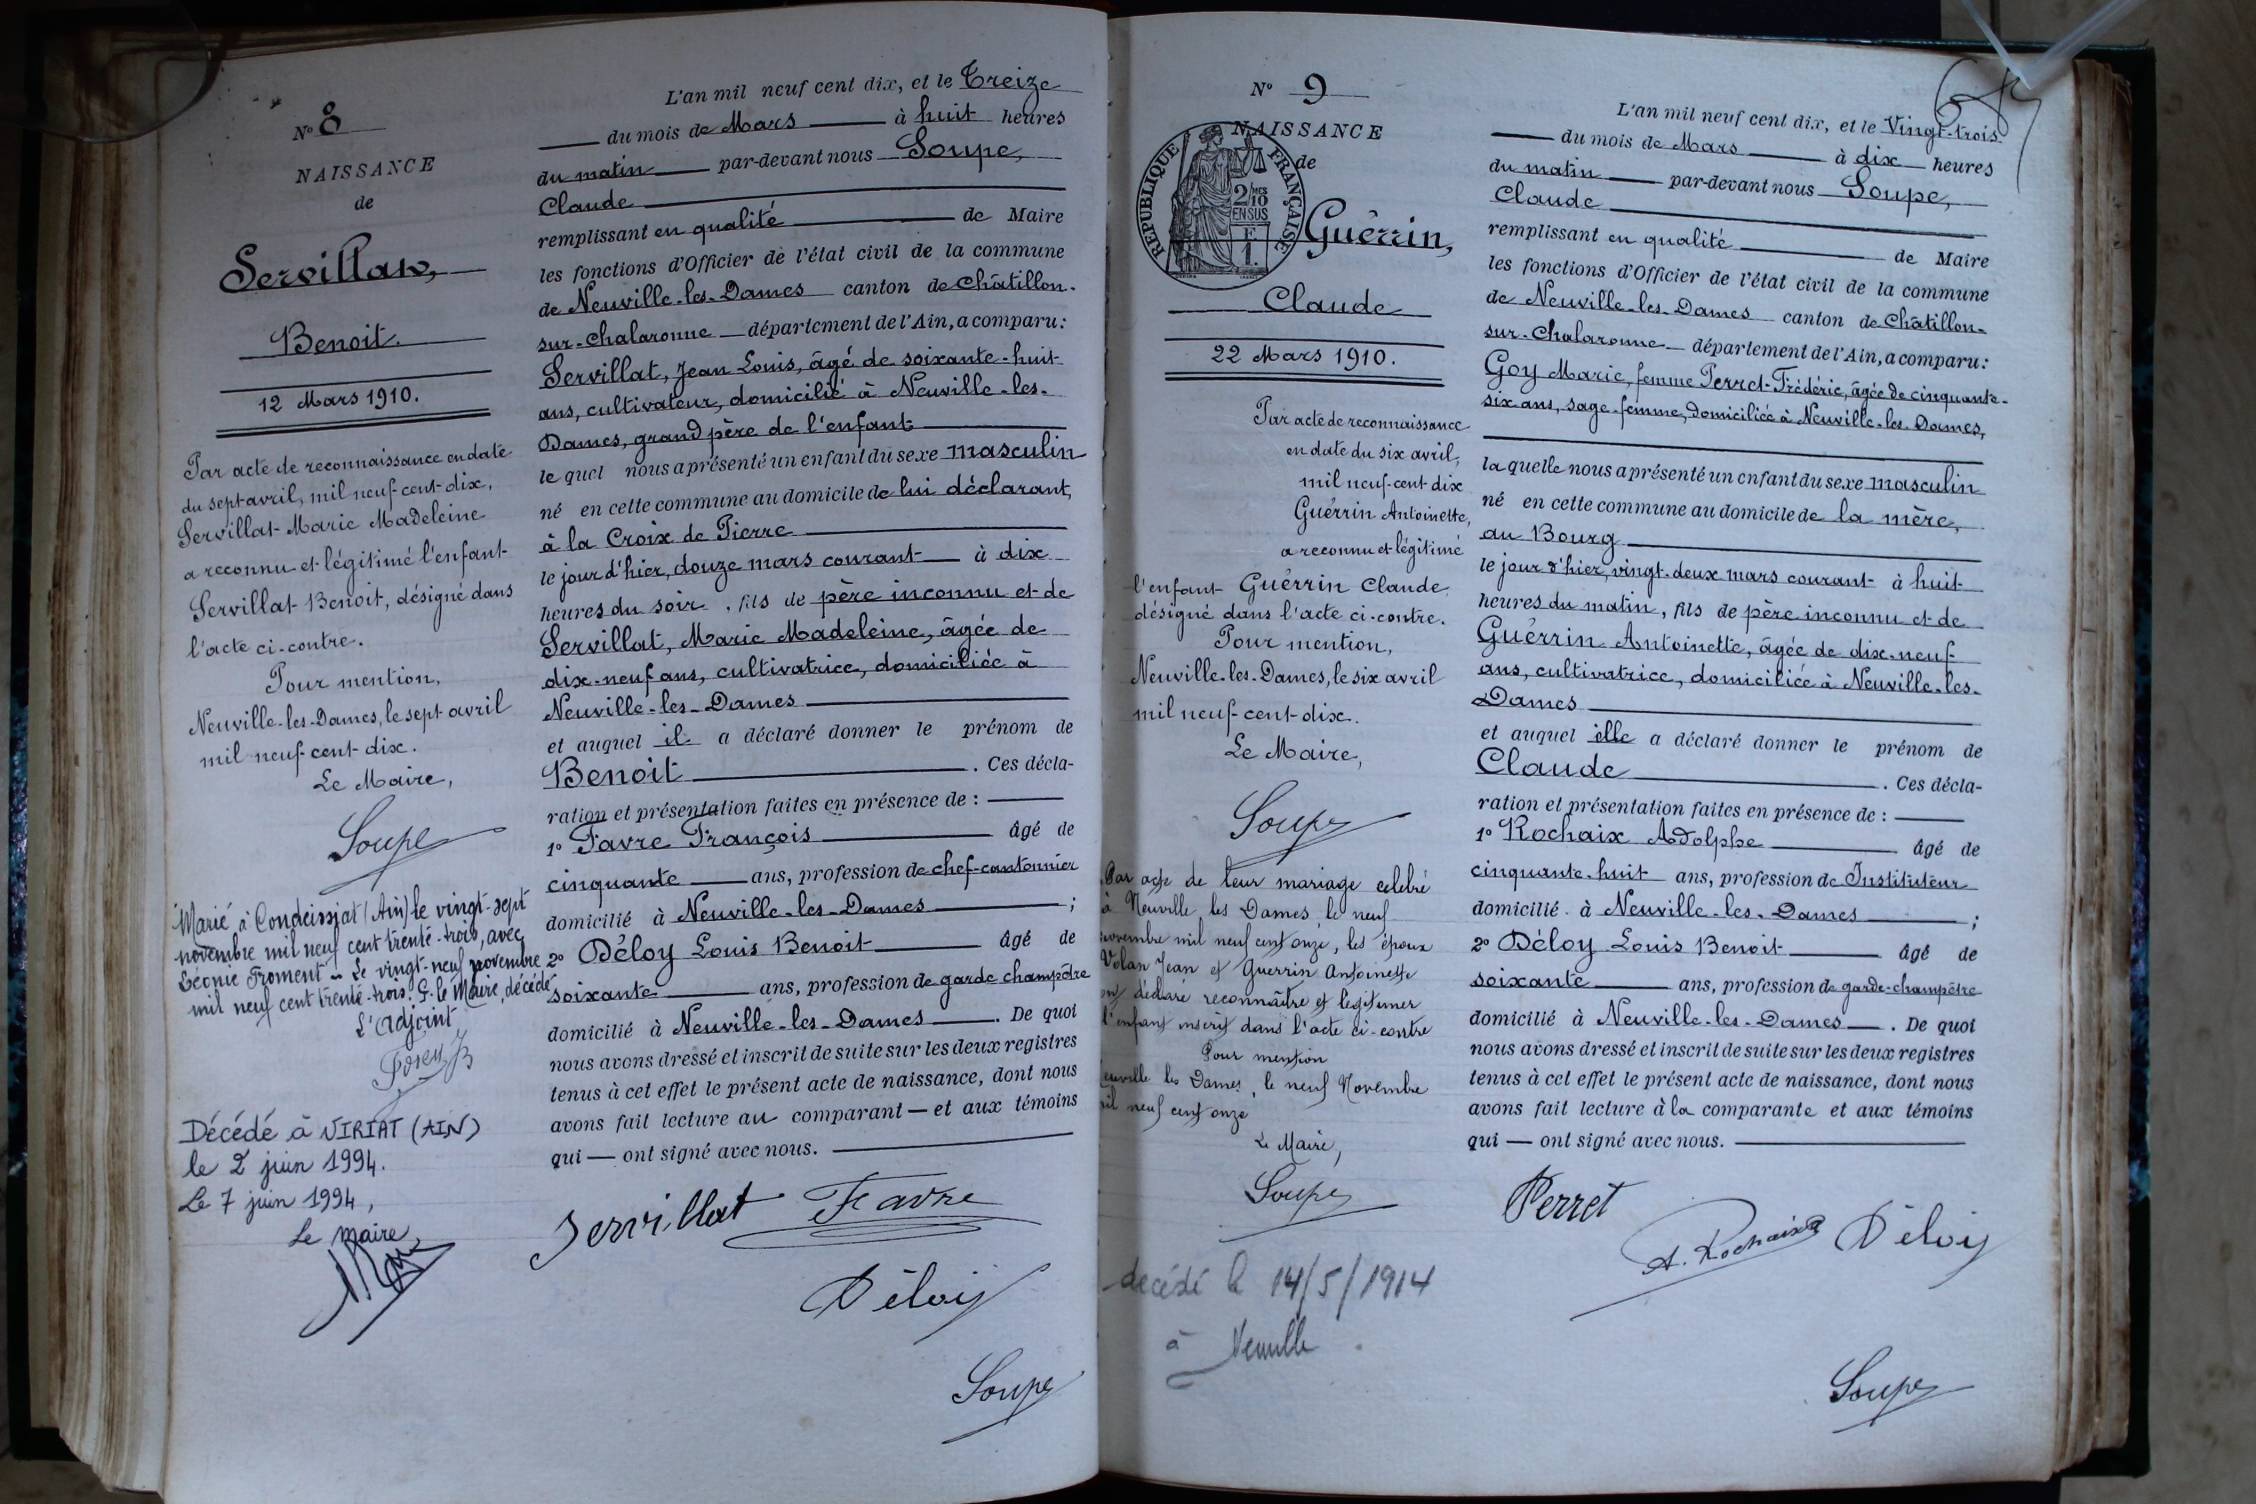 N° 8
NAISSANCE
de
Servillat,
Benoit.
12 Mars 1910.
Par acte de reconnaissance en date
du sept avril, mil neuf-cent-dix,
Servillat Marie Madeleine
a reconnu et légitimé l'enfant
Servillat Benoit, désigné dans
l'acte ci-contre.
Pour mention,
Neuville-les-Dames, le sept avril
mil neuf-cent-dix.
Le Maire,
Soupe
Marié à Condeissiat (Ain) le vingt-sept
novembre mil neuf cent trente-trois, avec
Léonie Froment - Le vingt-neuf novembre
mil neuf cent trente-trois. P. le Maire, décédé,
L'adjoint,
Décédé à VIRIAT (AIN)
le 2 juin 1994.
Le 7 juin 1994,
Le maire,
L'an mil neuf cent dix, et le Treize
du mois de Mars à huit heures
du matin par-devant nous Soupe,
Claude
remplissant en qualité de Maire
les fonctions d'Officier de l'état civil de la commune
de Neuville-les-Dames canton de Châtillon-
sur-Chalaronne département de l'Ain, a comparu:
Servillat, Jean Louis, âgé de soixante-huit
ans, cultivateur, domicilié à Neuville-les-
Dames, grand père de l'enfant
le quel nous a présenté un enfant du sexe masculin
né en cette commune au domicile de lui déclarant,
à la Croix de Pierre
le jour d'hier, douze mars courant à dix
heures du soir, fils de père inconnu et de
Servillat, Marie Madeleine, âgée de
dix-neuf ans, cultivatrice, domiciliée à
Neuville-les-Dames
et auquel il a déclaré donner le prénom de
Benoit . Ces décla-
ration et présentation faites en présence de :
1° Favre François âgé de
cinquante ans, profession de chef-cantonnier
domicilié à Neuville-les-Dames ;
2° Déloy Louis Benoit âgé de
soixante ans, profession de garde champêtre
domicilié à Neuville-les-Dames . De quoi
nous avons dressé et inscrit de suite sur les deux registres
tenus à cet effet le présent acte de naissance, dont nous
avons fait lecture au comparant — et aux témoins
qui — ont signé avec nous.
Servillat Favre
Déloy
Soupe
N° 9
NAISSANCE
de
RÉPUBLIQUE FRANÇAISE
2/10 MES
EN SUS
F.
1.
Guérrin,
Claude
22 Mars 1910.
Par acte de reconnaissance
en date du six avril,
mil neuf-cent dix
Guérrin Antoinette,
a reconnu et légitimé
l'enfant Guérrin Claude
désigné dans l'acte ci-contre.
Pour mention,
Neuville-les-Dames, le six avril
mil neuf-cent-dix.
Le Maire,
Soupe
Par acte de leur mariage célébré
à Neuville les Dames le neuf
novembre mil neuf cent onze, les époux
Volan Jean et Guerrin Antoinette
ont déclaré reconnaître et légitimer
l'enfant inscrit dans l'acte ci-contre
Pour mention
Neuville les Dames, le neuf Novembre
mil neuf cent onze
Le Maire,
Soupe
décédé le 14/5/1914
à Neuville.
L'an mil neuf cent dix, et le Vingt-trois
du mois de Mars à dix heures
du matin par-devant nous Soupe,
Claude
remplissant en qualité de Maire
les fonctions d'Officier de l'état civil de la commune
de Neuville-les-Dames canton de Châtillon-
sur-Chalaronne département de l'Ain, a comparu:
Goy Marie, femme Perret-Frédéric, âgée de cinquante-
six ans, sage-femme, domiciliée à Neuville-les-Dames,
la quelle nous a présenté un enfant du sexe masculin
né en cette commune au domicile de la mère,
au Bourg
le jour d'hier, vingt-deux mars courant à huit
heures du matin, fils de père inconnu et de
Guérrin Antoinette, âgée de dix-neuf
ans, cultivatrice, domiciliée à Neuville-les-
Dames
et auquel elle a déclaré donner le prénom de
Claude . Ces décla-
ration et présentation faites en présence de :
1° Rochaix Adolphe âgé de
cinquante-huit ans, profession de Instituteur
domicilié à Neuville-les-Dames ;
2° Déloy Louis Benoit âgé de
soixante ans, profession de garde-champêtre
domicilié à Neuville-les-Dames . De quoi
nous avons dressé et inscrit de suite sur les deux registres
tenus à cet effet le présent acte de naissance, dont nous
avons fait lecture à la comparante et aux témoins
qui — ont signé avec nous.
Perret
A. Rochaix Déloy
Soupe